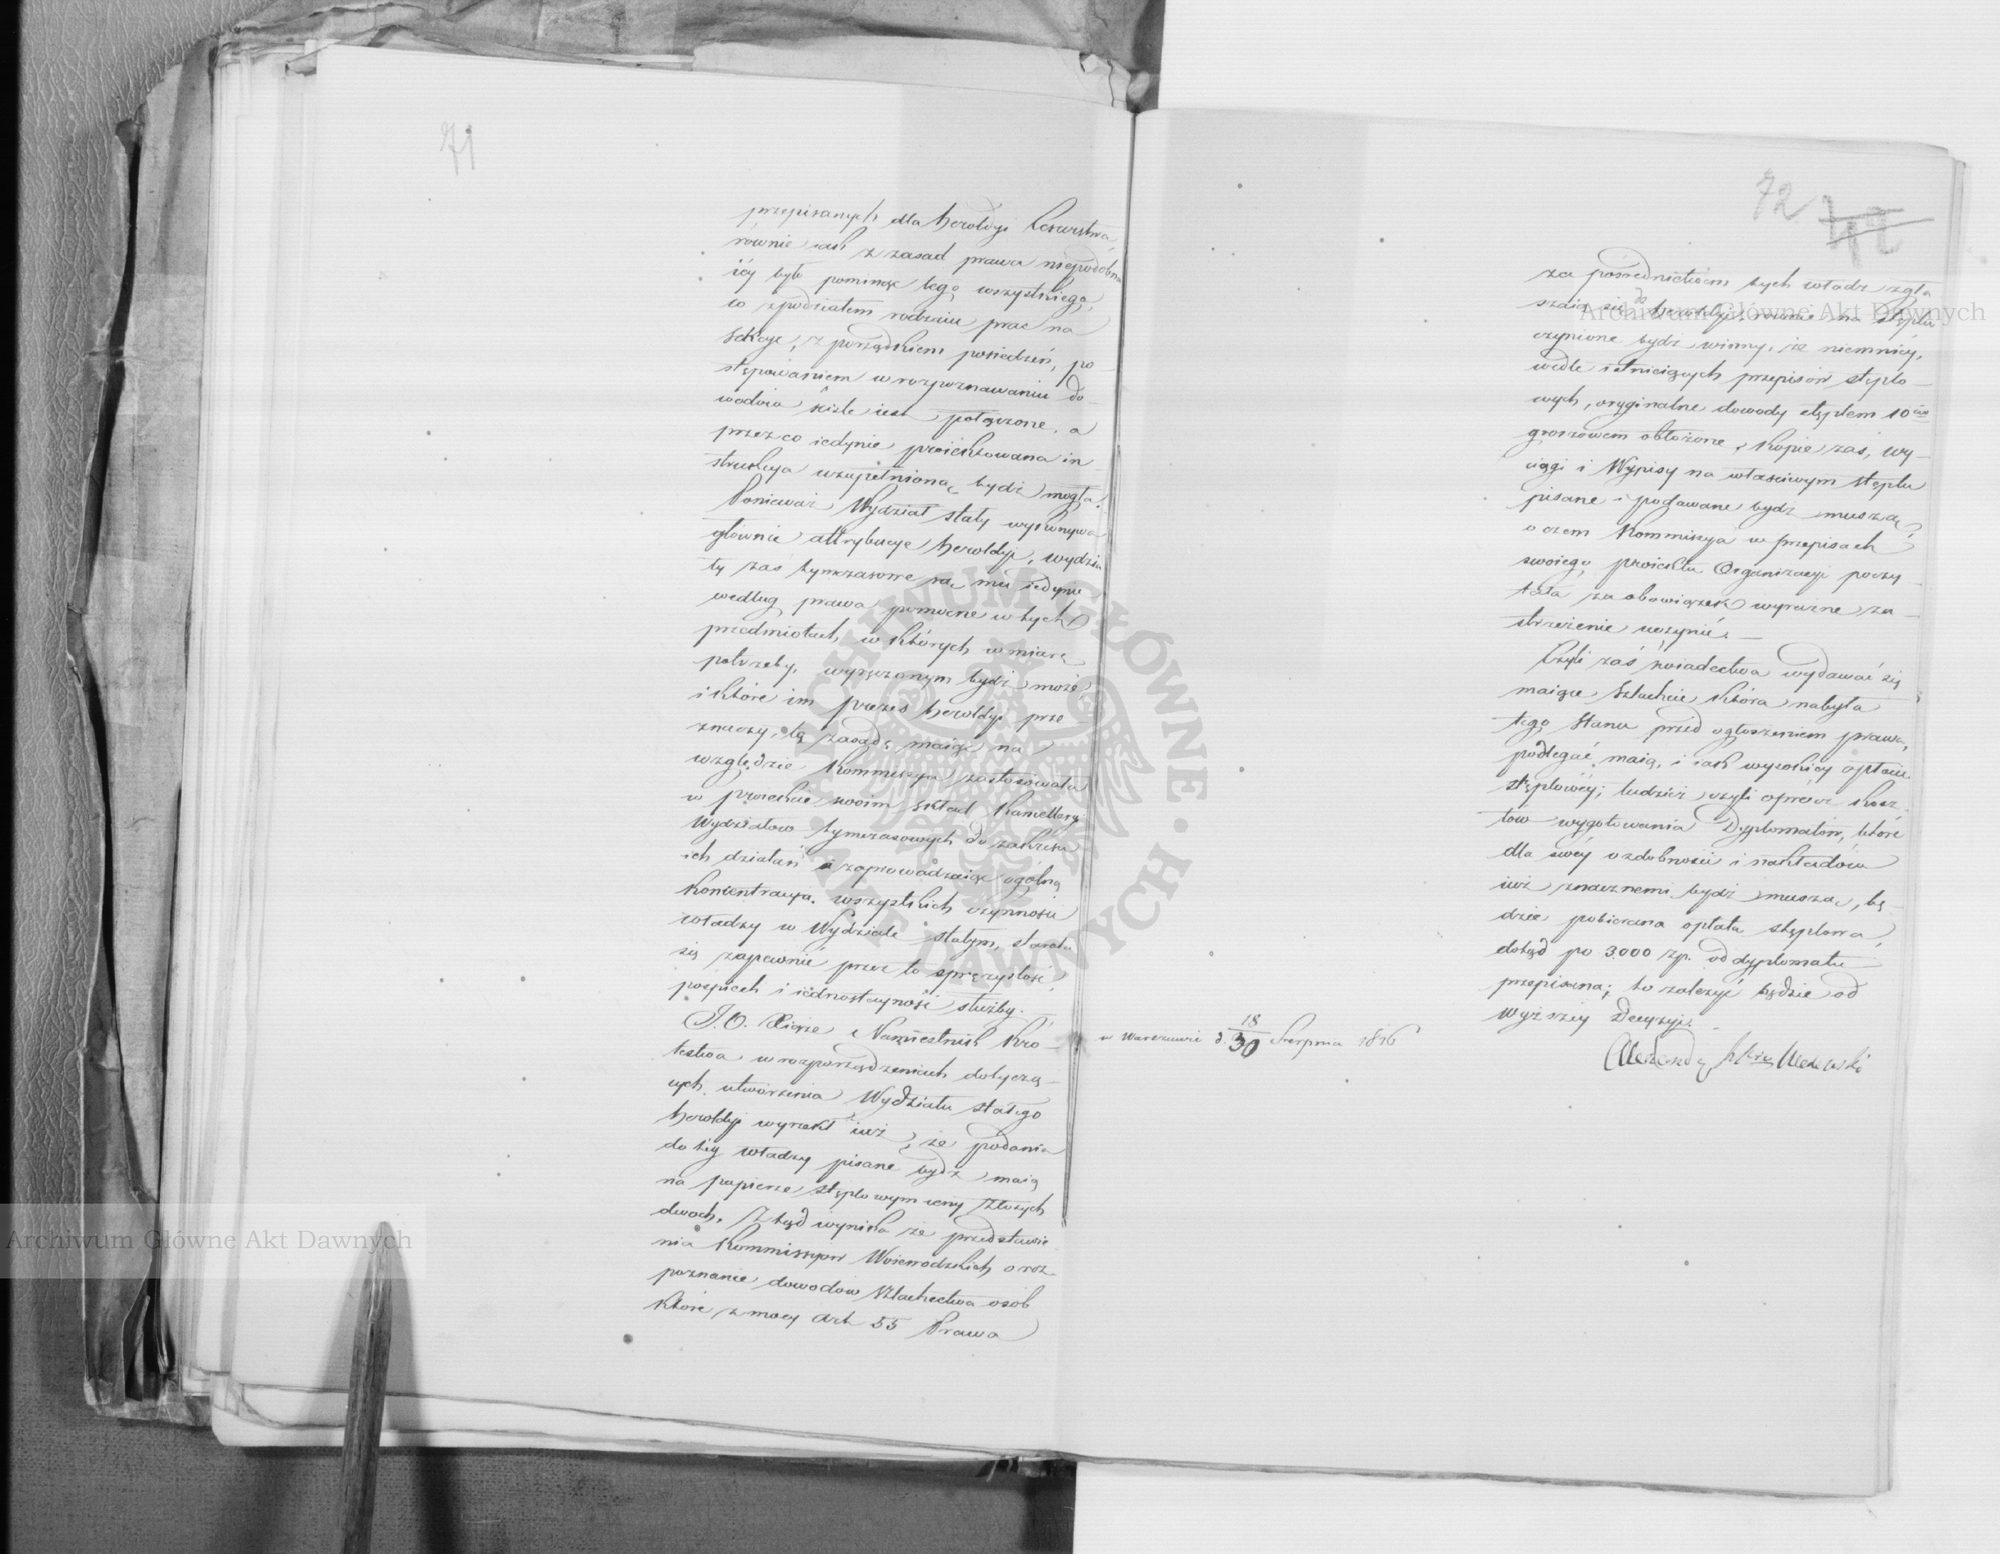 71
przepisanych dla Heroldyi Cesarstwa,
równie iak z zasad prawa niepodobna
iéy było pominąć tego wszystkiego,
co z podziałem rodzaiu prac na
Sekcye, z porządkiem posiedzeń, po-
stępowaniem w rozpoznawaniu do-
wodów ściśle iest połączone, a
przez co iedynie proiektowana in-
strukcya uzupełnioną bydź mogła.
Ponieważ Wydział stały wykonywa
głównie attrybucye Heroldyi, wydzia
ły zaś tymczasowe są mu iedynie
według prawa pomocne w tych
przedmiotach, w których w miarę
potrzeby, wyręczanym bydź może,
i które im Prezes Heroldyi prze
znaczy, tę zasadę maiąc na
względzie Kommissya zastosowała
w proiekcie swoim skład Kancellaryi
Wydziałow tymczasowych do zakresu
ich działań a zaprowadzaiąc ogólną
koncentracyą wszystkich czynności
władzy w Wydziale stałym, starała
się zapewnić przez to sprężystość,
pośpiech i iednostayność służby.
J. O. Xiąże Namiestnik Kró-
lestwa w rozporządzeniach dotyczą-
cych utworzenia Wydziału stałego
Heroldyi wyrzekł iuż, że podania
do téy władzy pisane bydź maią
na papierze stęplowym ceny złotych
dwóch. Ztąd wynika że przedstawie
nia Kommissyów Woiewodzkich o roz-
poznanie dowodów Szlachectwa osób
które z mocy Art 55 Prawa
72
za pośrednictwem tych władz zgła
szaią się do Heroldyi, równie na stęplu
czynione bydź winny, że niemniéy,
wedle istnieiących przepisów stęplo-
wych, oryginalne dowody stęplem 10cio
groszowem obłożone, Kopie zaś, wy-
ciągi i Wypisy na właściwym stęplu
pisane i podawane bydź muszą,
o czem Kommissya w przepisach
swoiego proiektu Organizacyi poczy-
tała za obowiązek wyraźne za-
strzeżenie uczynić.
Czyli zaś świadectwa wydawać się
maiące Szlachcie która nabyła
tego Stanu przed ogłoszeniem prawa,
podlegać maią, i iak wysokiéy opłacie
stęplowéy; tudzież czyli oprócz kosz-
tów wygotowania Dyplomatów, które
dla swéy ozdobności i nakładów
iuż znacznemi bydź muszą, bę-
dzie pobierana opłata stęplowa,
dotąd po 3.000 złp. od dyplomatu
przepisana; to zależyć będzie od
wyższéy Decyzyi.
w Warszawie d. 18/30 Sierpnia 1836